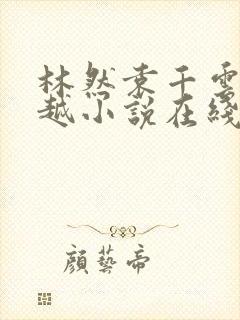 林然秦千雪
越小說在綫
顔藝帝